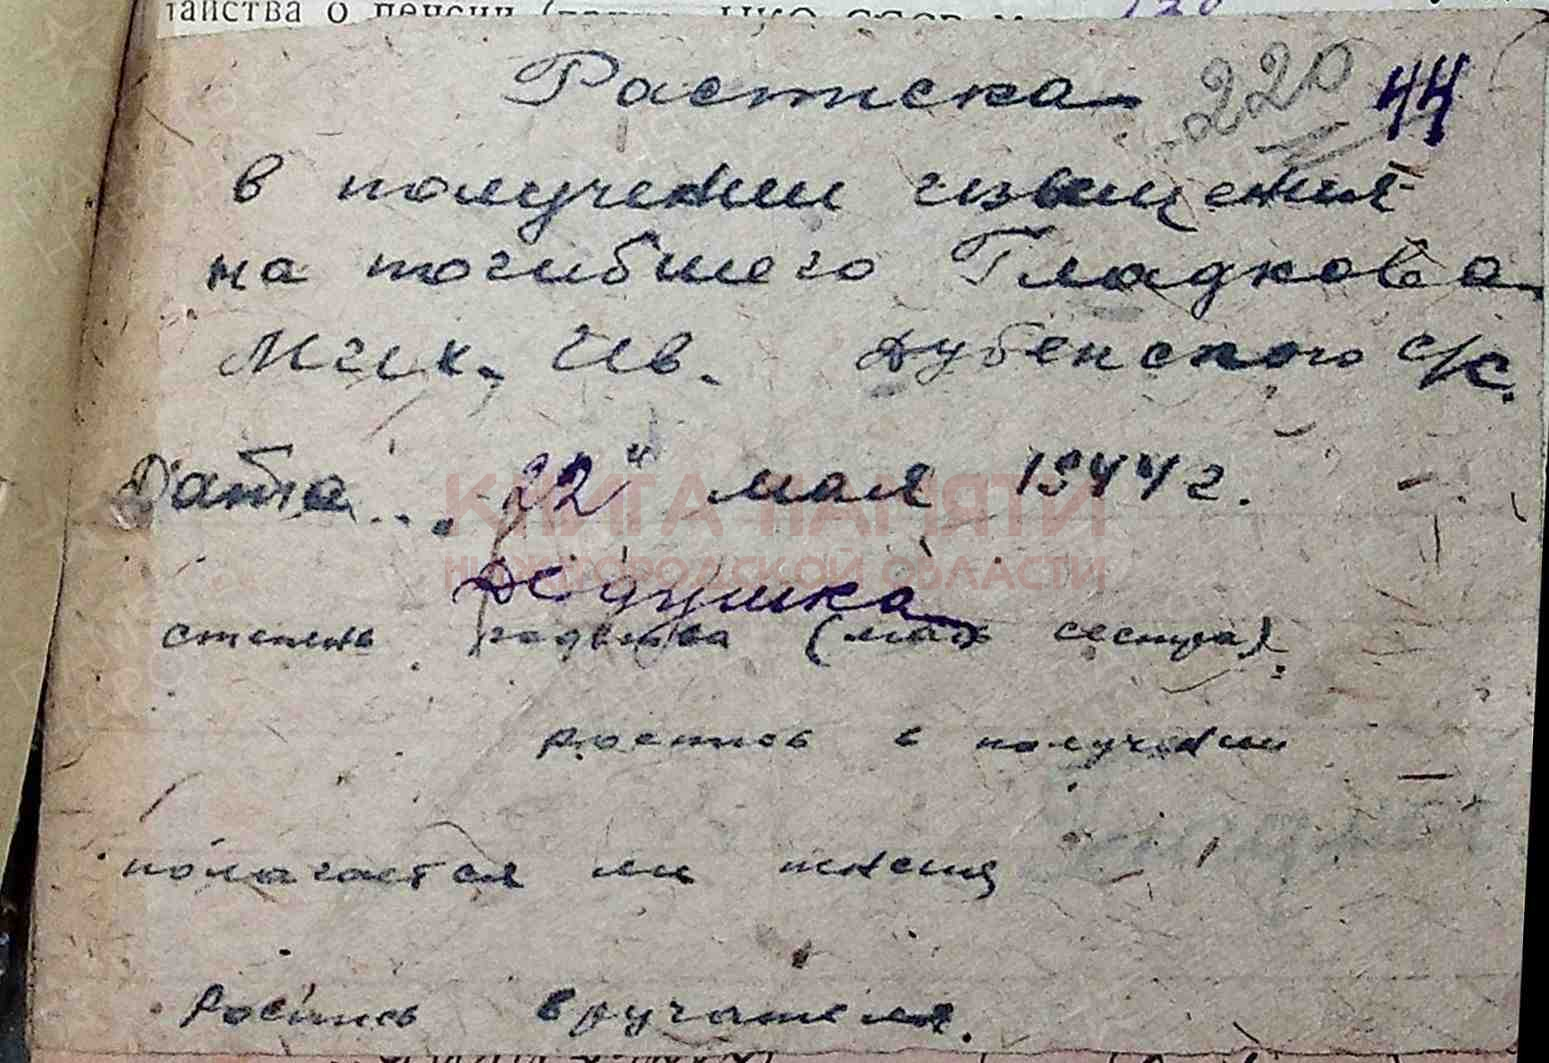 тайства о пенсии
Расписка 220 44
в получении извещения
на погибшего Гладкова
Мих. Ив. Дубенского с/с.
Дата... "22" мая 1944 г.
КНИГА ПАМЯТИ
НИЖЕГОРОДСКОЙ ОБЛАСТИ
Дедушка
степень родства (мать сестра).
роспись в получении
полагается ли пенсия
Роспись вручателя.